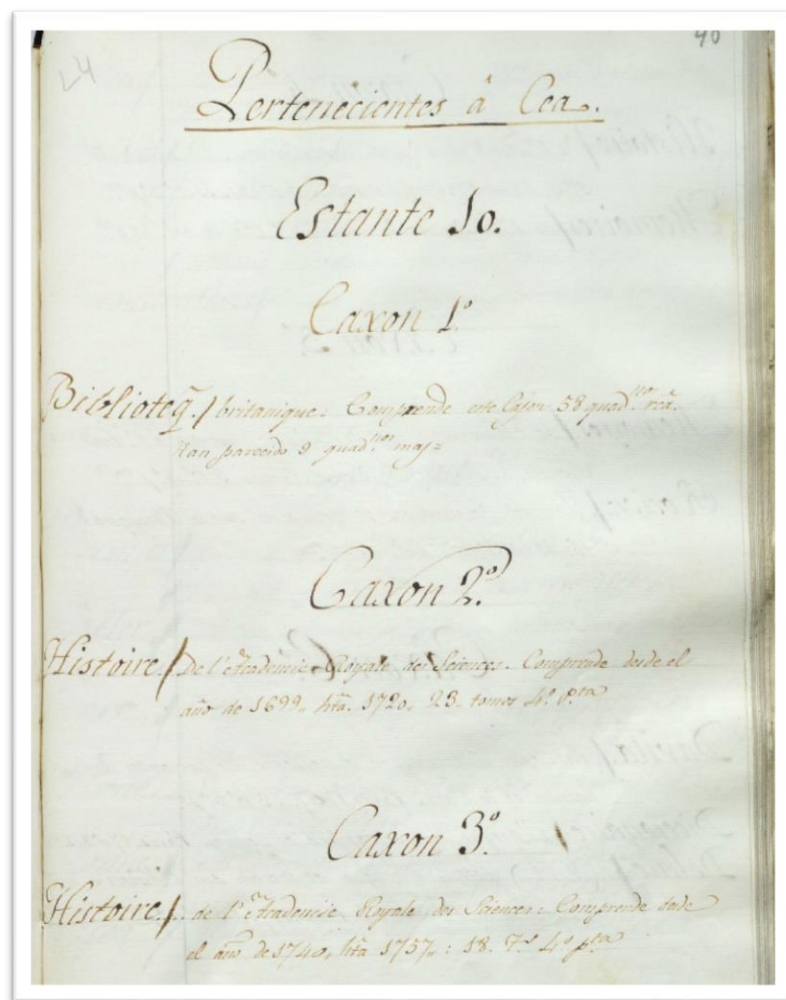 40
L4
Pertenecientes â Cea.
Estante 10.
Caxon 1º
Biblioteq. / britanique. Comprende este Cajon 58 quad.nos rca.
Han parecido 9 quad.nos mas=
Caxon 2º.
Histoire / De l'Academie Royale des Sciences. Comprende desde el
año de 1699,, hta. 1720,, 23. tomos 4º. pta
Caxon 3º.
Histoire / de l'Academie Royale des Sciences: Comprende desde
el año de 1740,, hta 1757,,: 18. Ts 4º pta